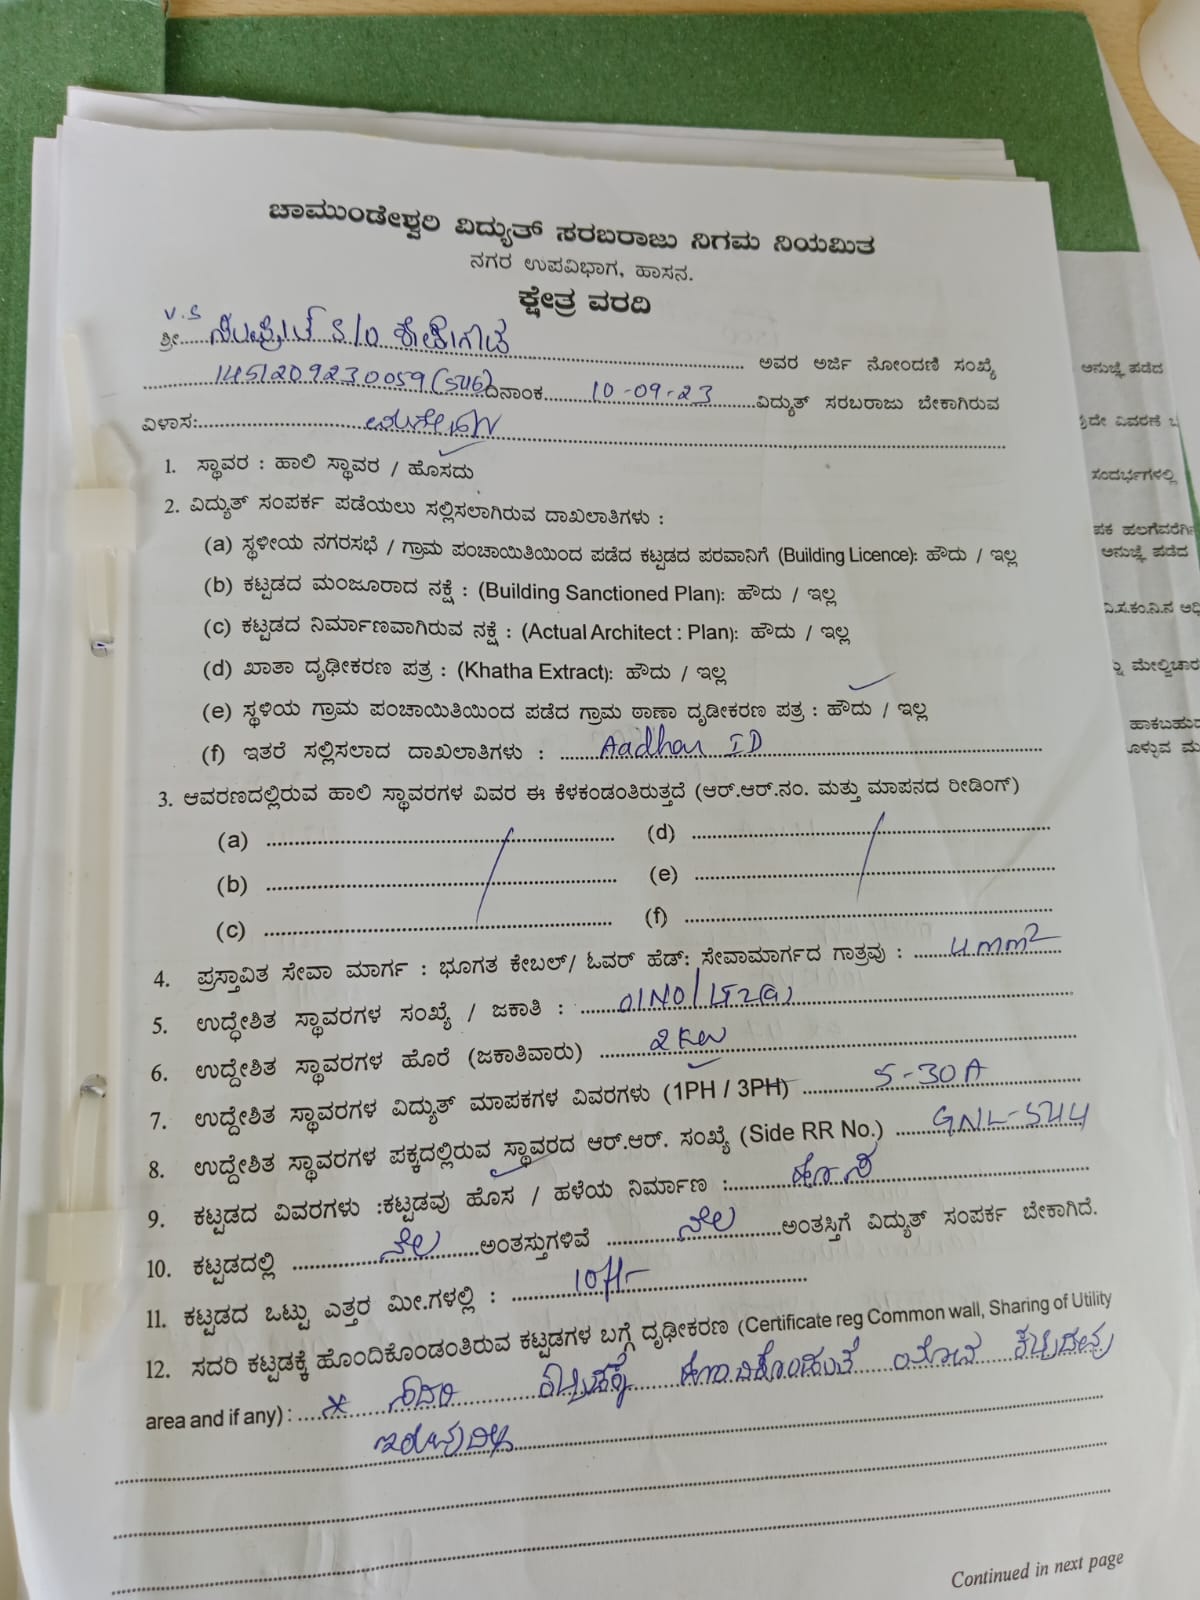 ಚಾಮುಂಡೇಶ್ವರಿ ವಿದ್ಯುತ್ ಸರಬರಾಜು ನಿಗಮ ನಿಯಮಿತ
ನಗರ ಉಪವಿಭಾಗ, ಹಾಸನ.
ಕ್ಷೇತ್ರ ವರದಿ
V.S
ಶ್ರೀ. S/O ಅವರ ಅರ್ಜಿ ನೋಂದಣಿ ಸಂಖ್ಯೆ
1451209230059(546) ದಿನಾಂಕ 10-09-23 ವಿದ್ಯುತ್ ಸರಬರಾಜು ಬೇಕಾಗಿರುವ
ವಿಳಾಸ:
1. ಸ್ಥಾವರ : ಹಾಲಿ ಸ್ಥಾವರ / ಹೊಸದು
2. ವಿದ್ಯುತ್ ಸಂಪರ್ಕ ಪಡೆಯಲು ಸಲ್ಲಿಸಲಾಗಿರುವ ದಾಖಲಾತಿಗಳು :
(a) ಸ್ಥಳೀಯ ನಗರಸಭೆ / ಗ್ರಾಮ ಪಂಚಾಯಿತಿಯಿಂದ ಪಡೆದ ಕಟ್ಟಡದ ಪರವಾನಿಗೆ (Building Licence): ಹೌದು / ಇಲ್ಲ
(b) ಕಟ್ಟಡದ ಮಂಜೂರಾದ ನಕ್ಷೆ : (Building Sanctioned Plan): ಹೌದು / ಇಲ್ಲ
(c) ಕಟ್ಟಡದ ನಿರ್ಮಾಣವಾಗಿರುವ ನಕ್ಷೆ : (Actual Architect : Plan): ಹೌದು / ಇಲ್ಲ
(d) ಖಾತಾ ದೃಢೀಕರಣ ಪತ್ರ : (Khatha Extract): ಹೌದು / ಇಲ್ಲ
(e) ಸ್ಥಳಿಯ ಗ್ರಾಮ ಪಂಚಾಯಿತಿಯಿಂದ ಪಡೆದ ಗ್ರಾಮ ಠಾಣಾ ದೃಡೀಕರಣ ಪತ್ರ : ಹೌದು / ಇಲ್ಲ
(f) ಇತರೆ ಸಲ್ಲಿಸಲಾದ ದಾಖಲಾತಿಗಳು : Aadhar ID
3. ಆವರಣದಲ್ಲಿರುವ ಹಾಲಿ ಸ್ಥಾವರಗಳ ವಿವರ ಈ ಕೆಳಕಂಡಂತಿರುತ್ತದೆ (ಆರ್.ಆರ್.ನಂ. ಮತ್ತು ಮಾಪನದ ರೀಡಿಂಗ್)
(a) (d)
(b) (e)
(c) (f)
4. ಪ್ರಸ್ತಾವಿತ ಸೇವಾ ಮಾರ್ಗ : ಭೂಗತ ಕೇಬಲ್/ ಓವರ್ ಹೆಡ್: ಸೇವಾಮಾರ್ಗದ ಗಾತ್ರವು : 4mm2
5. ಉದ್ಧೇಶಿತ ಸ್ಥಾವರಗಳ ಸಂಖ್ಯೆ / ಜಕಾತಿ : 01NO/LT2(a)
6. ಉದ್ದೇಶಿತ ಸ್ಥಾವರಗಳ ಹೊರೆ (ಜಕಾತಿವಾರು) 2 KW
7. ಉದ್ದೇಶಿತ ಸ್ಥಾವರಗಳ ವಿದ್ಯುತ್ ಮಾಪಕಗಳ ವಿವರಗಳು (1PH / 3PH) 5-30A
8. ಉದ್ದೇಶಿತ ಸ್ಥಾವರಗಳ ಪಕ್ಕದಲ್ಲಿರುವ ಸ್ಥಾವರದ ಆರ್.ಆರ್. ಸಂಖ್ಯೆ (Side RR No.) GNL-544
9. ಕಟ್ಟಡದ ವಿವರಗಳು :ಕಟ್ಟಡವು ಹೊಸ / ಹಳೆಯ ನಿರ್ಮಾಣ : ಹೊಸ
10. ಕಟ್ಟಡದಲ್ಲಿ ನೆಲ ಅಂತಸ್ತುಗಳಿವೆ ನೆಲ ಅಂತಸ್ತಿಗೆ ವಿದ್ಯುತ್ ಸಂಪರ್ಕ ಬೇಕಾಗಿದೆ.
11. ಕಟ್ಟಡದ ಒಟ್ಟು ಎತ್ತರ ಮೀ.ಗಳಲ್ಲಿ : 10ft-
12. ಸದರಿ ಕಟ್ಟಡಕ್ಕೆ ಹೊಂದಿಕೊಂಡಂತಿರುವ ಕಟ್ಟಡಗಳ ಬಗ್ಗೆ ದೃಢೀಕರಣ (Certificate reg Common wall, Sharing of Utility
area and if any) : * ಸದರಿ ಕಟ್ಟಡಕ್ಕೆ ಹೊಂದಿಕೊಂಡಂತೆ ಯಾವ ಕಟ್ಟಡವು
ಇರುವುದಿಲ್ಲ
Continued in next page
ಅನುಜ್ಞೆ ಪಡೆದ
ಸಂದರ್ಭಗಳಲ್ಲಿ
ಅನುಜ್ಞೆ ಪಡೆದ
ಹಾಕಬಹುದ